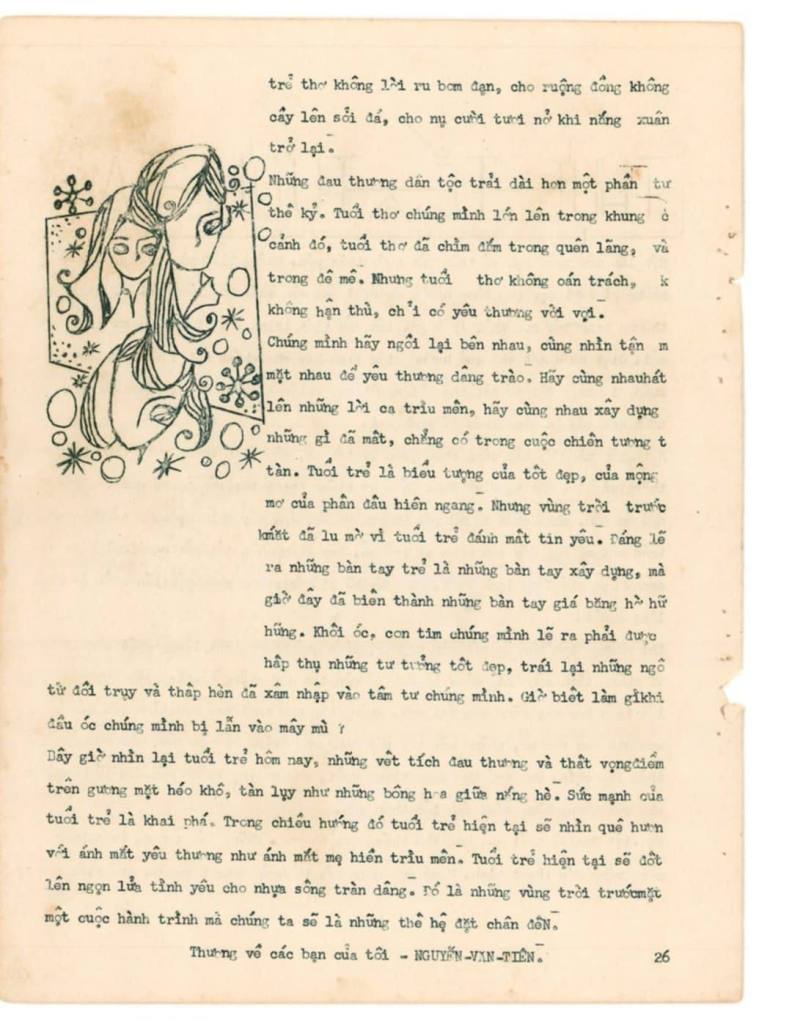 trẻ thơ không lời ru bom đạn, cho ruộng đồng không
cấy lên sỏi đá, cho nụ cười tươi nở khi nắng xuân
trở lại.
Những đau thương dân tộc trải dài hơn một phần tư
thế kỷ. Tuổi thơ chúng mình lớn lên trong khung c
cảnh đó, tuổi thơ đã chìm đắm trong quên lãng, và
trong đê mê. Nhưng tuổi thơ không oán trách, k
không hận thù, chỉ có yêu thương vời vợi.
Chúng mình hãy ngồi lại bên nhau, cùng nhìn tận m
mặt nhau để yêu thương dâng trào. Hãy cùng nhauhát
lên những lời ca trìu mến, hãy cùng nhau xây dựng
những gì đã mất, chẳng có trong cuộc chiến tương t
tàn. Tuổi trẻ là biểu tượng của tốt đẹp, của mộng
mơ của phấn đấu hiên ngang. Nhưng vùng trời trước
mắt đã lu mờ vì tuổi trẻ đánh mất tin yêu. Đáng lẽ
ra những bàn tay trẻ là những bàn tay xây dựng, mà
giờ đây đã biến thành những bàn tay giá băng hờ hữ
hững. Khối óc, con tim chúng mình lẽ ra phải được
hấp thụ những tư tưởng tốt đẹp, trái lại những ngô
từ đồi trụy và thấp hèn đã xâm nhập vào tâm tư chúng mình. Giờ biết làm gìkhi
đầu óc chúng mình bị lẫn vào mây mù ?
Dây giờ nhìn lại tuổi trẻ hôm nay, những vết tích đau thương và thất vọngđiểm
trên gương mặt héo khô, tàn lụy như những bông hoa giữa nắng hè. Sức mạnh của
tuổi trẻ là khai phá. Trong chiều hướng đó tuổi trẻ hiện tại sẽ nhìn quê hươn
với ánh mắt yêu thương như ánh mắt mẹ hiền trìu mến. Tuổi trẻ hiện tại sẽ đốt
lên ngọn lửa tình yêu cho nhựa sống tràn dâng. Đó là những vùng trời trướcmặt
một cuộc hành trình mà chúng ta sẽ là những thế hệ đặt chân đếN.
Thương về các bạn của tôi - NGUYỄN-VĂN-TIÊN.
26